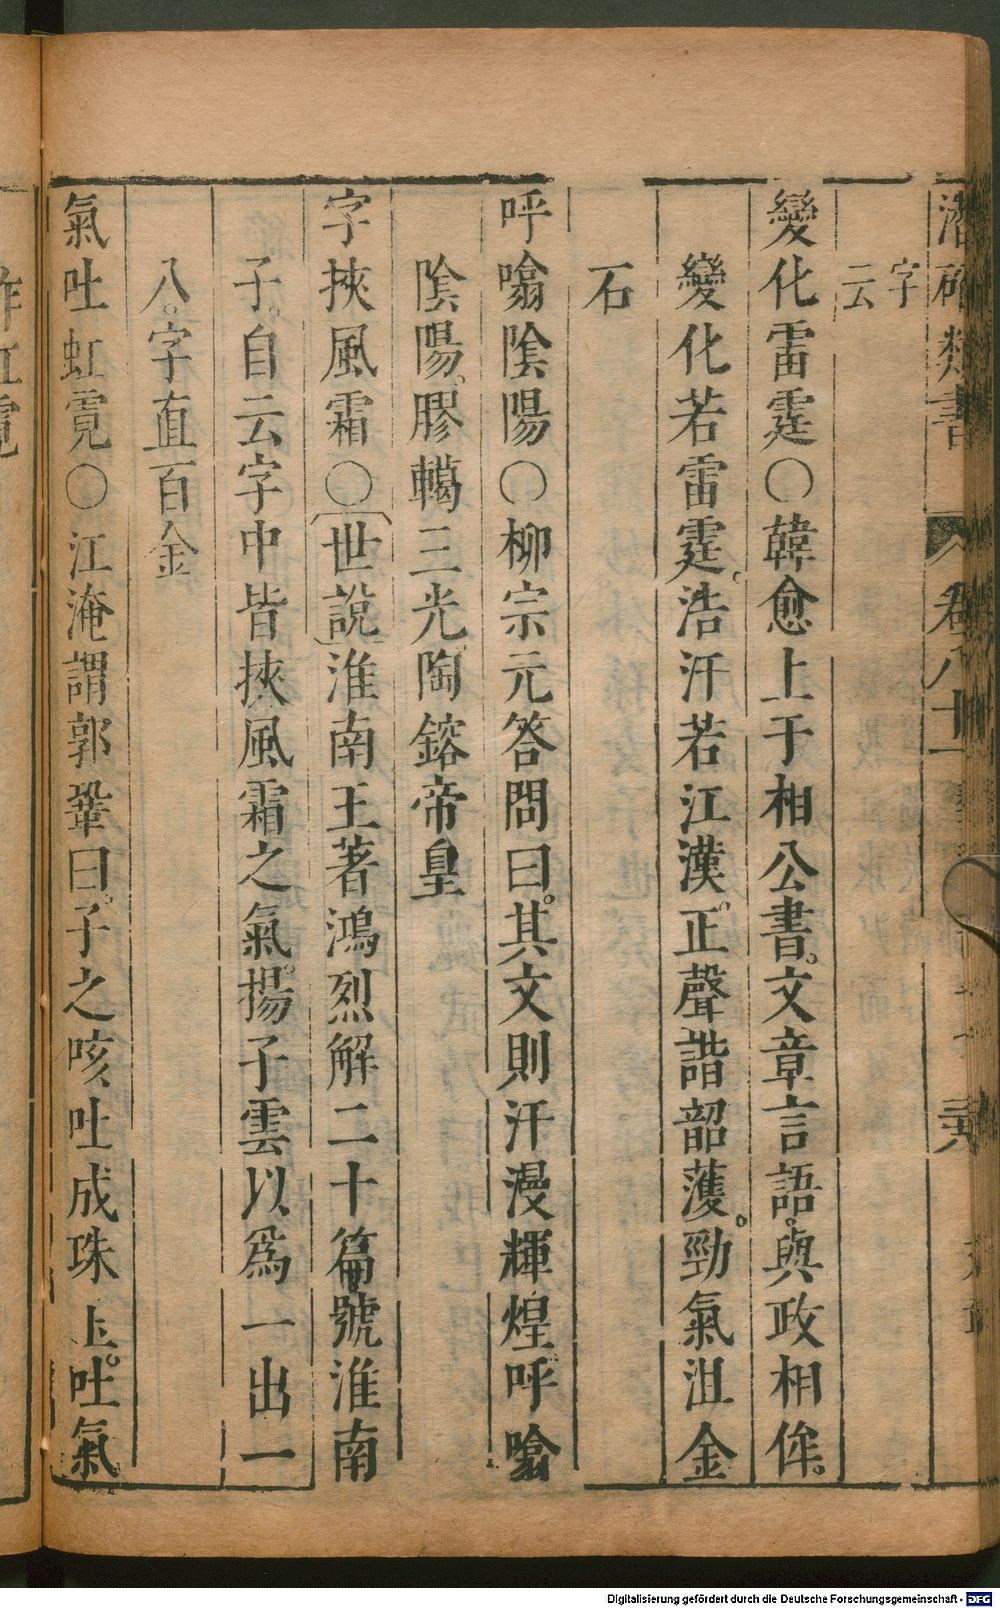 潛確類書 卷八十一
字
云
變化雷霆○韓愈上于相公書。文章言語。與政相侔。
變化若雷霆。浩汗若江漢。正聲諧韶濩。勁氣沮金
石
呼噏陰陽○柳宗元答問曰。其文則汗漫輝煌呼噏
陰陽。膠轕三光。陶鎔帝皇
字挾風霜○世說淮南王著鴻烈解二十篇。號淮南
子。自云字中皆挾風霜之氣。揚子雲以爲一出一
入。字直百金
氣吐虹霓○江淹謂郭鞏曰。子之咳吐成珠玉。吐氣
作虹霓
Digitalisierung gefördert durch die Deutsche Forschungsgemeinschaft - DFG